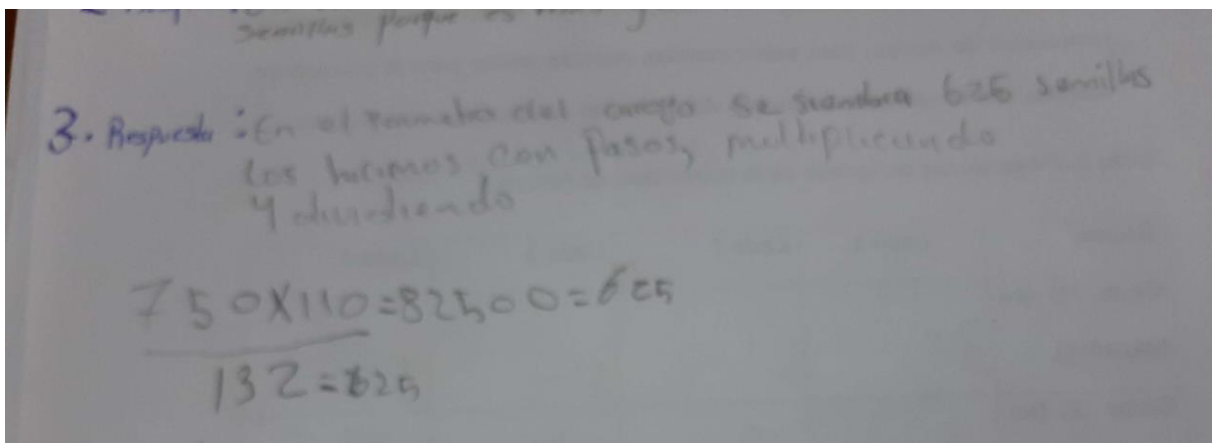 semillas porque es
3. Respuesta: En el perimetro del campo se siembra 625 semillas
los hicimos con pasos, multiplicando
y dividiendo
750X110=82500=625
132=625